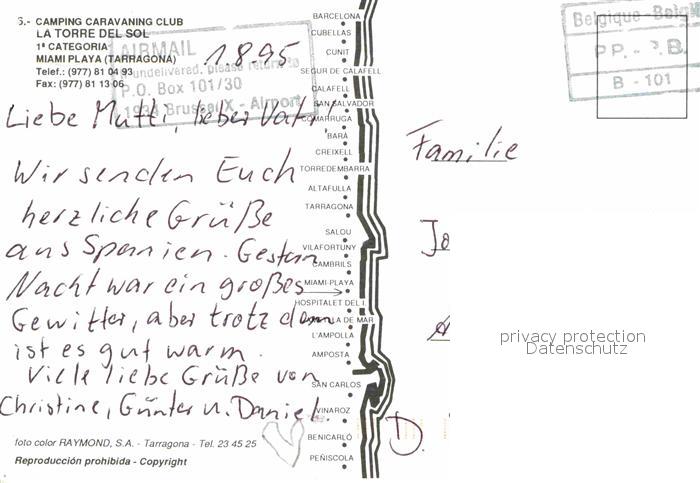 5.- CAMPING CARAVANING CLUB
LA TORRE DEL SOL
1ª CATEGORIA
MIAMI PLAYA (TARRAGONA)
Telef.: (977) 81 04 93
Fax: (977) 81 13 06
AIRMAIL
undelivered, please return to
P.O. Box 101/30
1934 Brussel X - Airport
1.8.95
Liebe Mutti, lieber Vati
Wir senden Euch
herzliche Grüße
aus Spanien. Gestern
Nacht war ein großes
Gewitter, aber trotzdem
ist es gut warm.
Viele liebe Grüße von
Christine, Günter u. Daniel.
foto color RAYMOND, S.A. - Tarragona - Tel. 23 45 25
Reproducción prohibida - Copyright
BARCELONA
CUBELLAS
CUNIT
SEGUR DE CALAFELL
CALAFELL
SAN SALVADOR
COMARRUGA
BARÁ
CREIXELL
TORREDEMBARRA
ALTAFULLA
TARRAGONA
SALOU
VILAFORTUNY
CAMBRILS
MIAMI-PLAYA
HOSPITALET DEL I.
LA DE MAR
L'AMPOLLA
AMPOSTA
SAN CARLOS
VINAROZ
BENICARLÓ
PEÑISCOLA
Belgique - België
P.P. - P.B.
B - 101
Familie
Jo
privacy protection
Datenschutz
D.